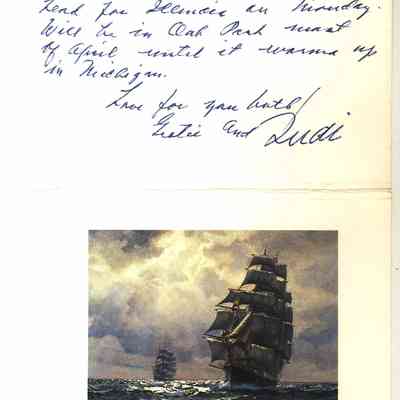 head for Illinois on Monday.
Will be in Oak Park most
of April until it warms up
in Michigan.
Love for you both!
and Rudi